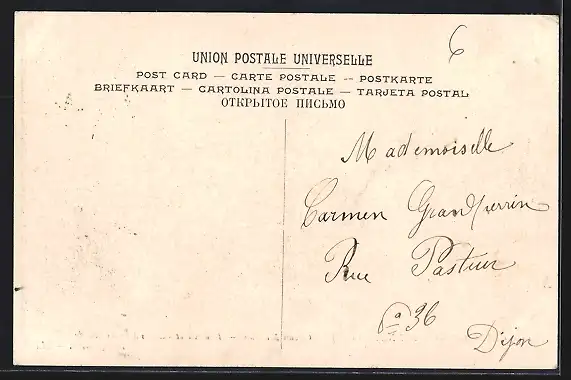 6
UNION POSTALE UNIVERSELLE
POST CARD — CARTE POSTALE — POSTKARTE
BRIEFKAART — CARTOLINA POSTALE — TARJETA POSTAL
ОТКРЫТОЕ ПИСЬМО
Mademoiselle
Carmen Grandperrin
Rue Pasteur
a 36
Dijon